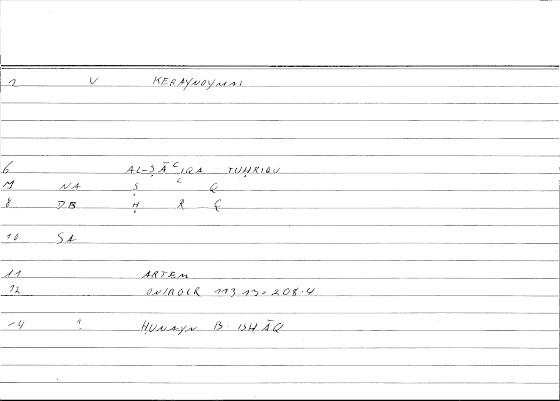 2 V KERAYNOYMAI
6 AL-ṢĀʿIQA TUḤRIQU
M NA Ṣ ʿ Q
8 DB Ḥ R Q
10 SA
11 ARTEM
12 ONIROCR 113.13 = 208.4
14 ḤUNAYN B. ISḤĀQ